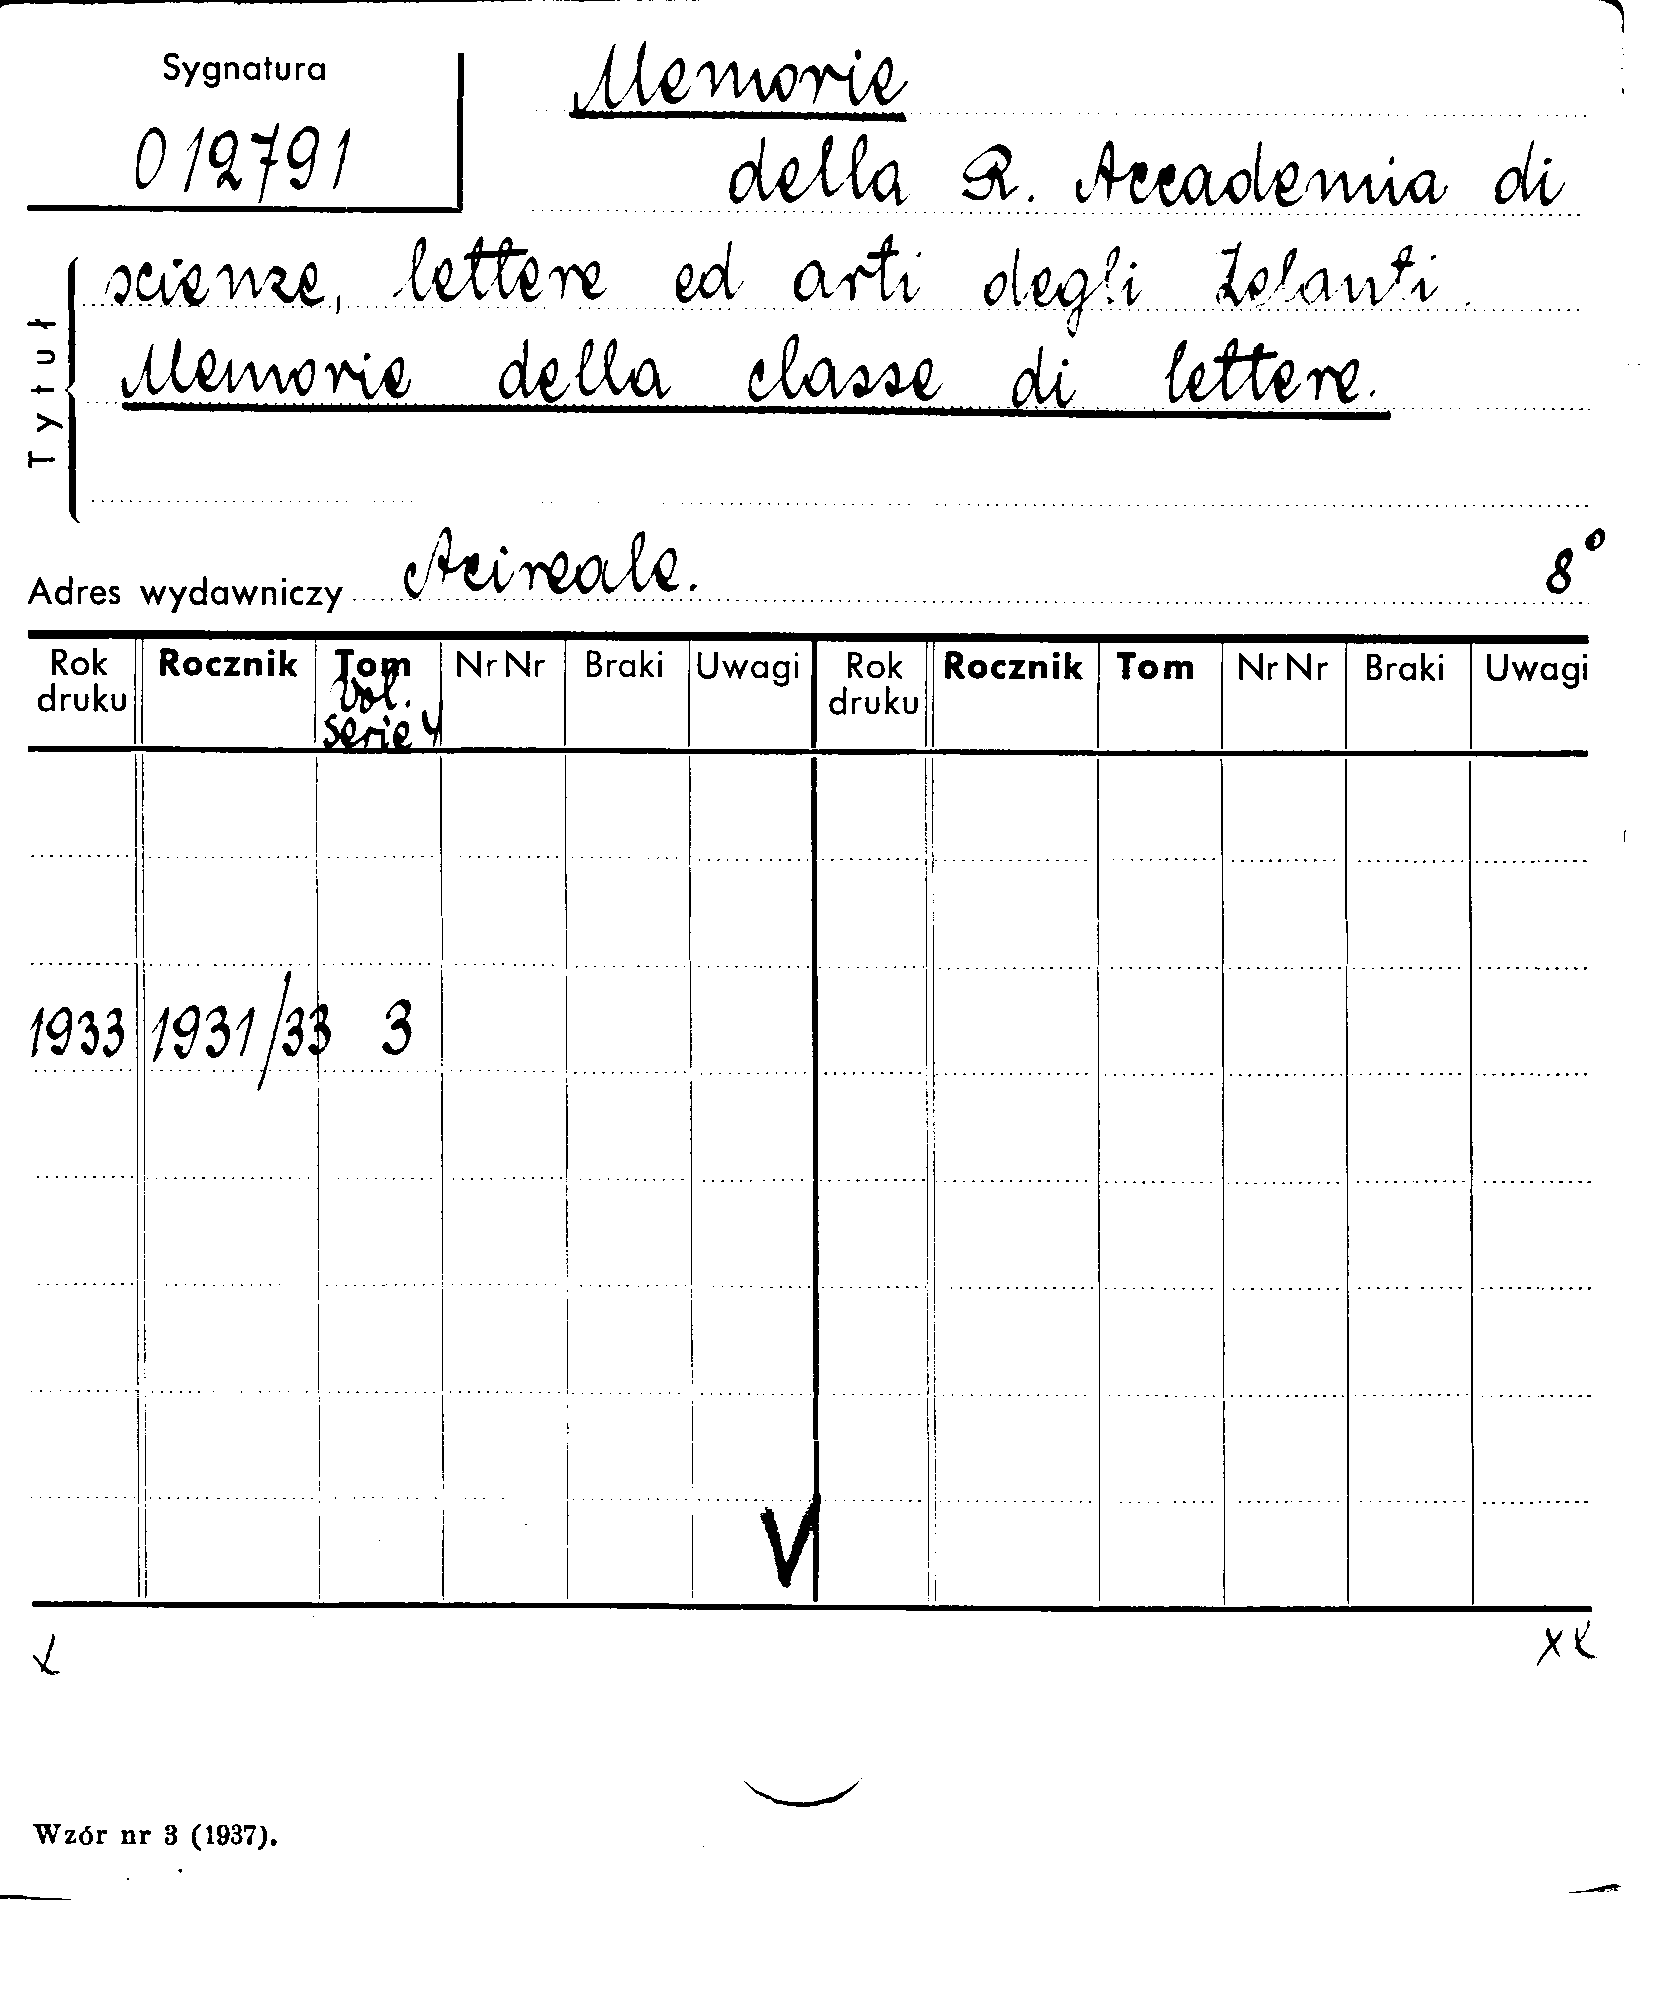 Sygnatura
012791
Memorie
della R. Accademia di
scienze, lettere ed arti degli Zelanti.
Memorie della classe di lettere.
Tytuł
Adres wydawniczy Acireale. 8°
Rok druku Rocznik Tom Nr Nr Braki Uwagi Rok druku Rocznik Tom Nr Nr Braki Uwagi
Vol.
serie 4
1933 1931/33 3
V
Wzór nr 3 (1937).